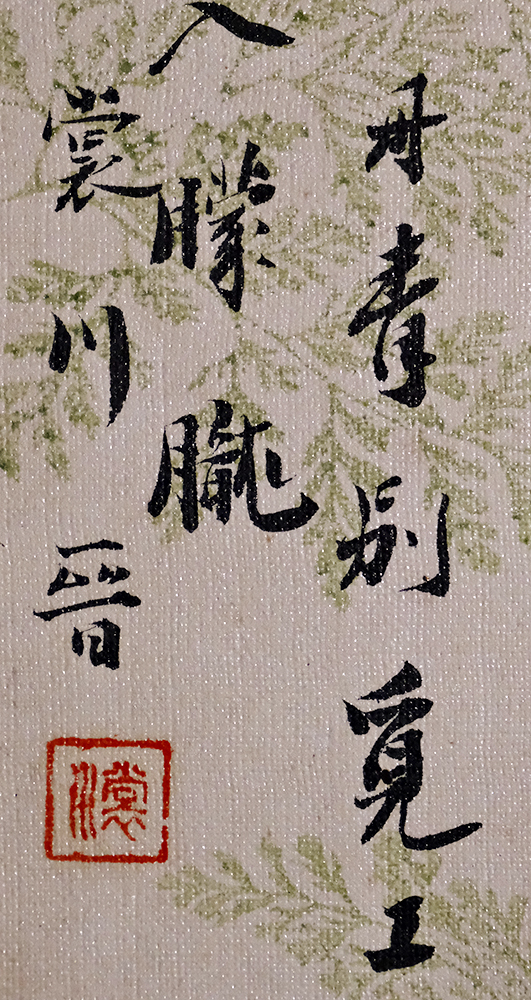 丹青别覓工
入朦朧
裳川晉
裳川